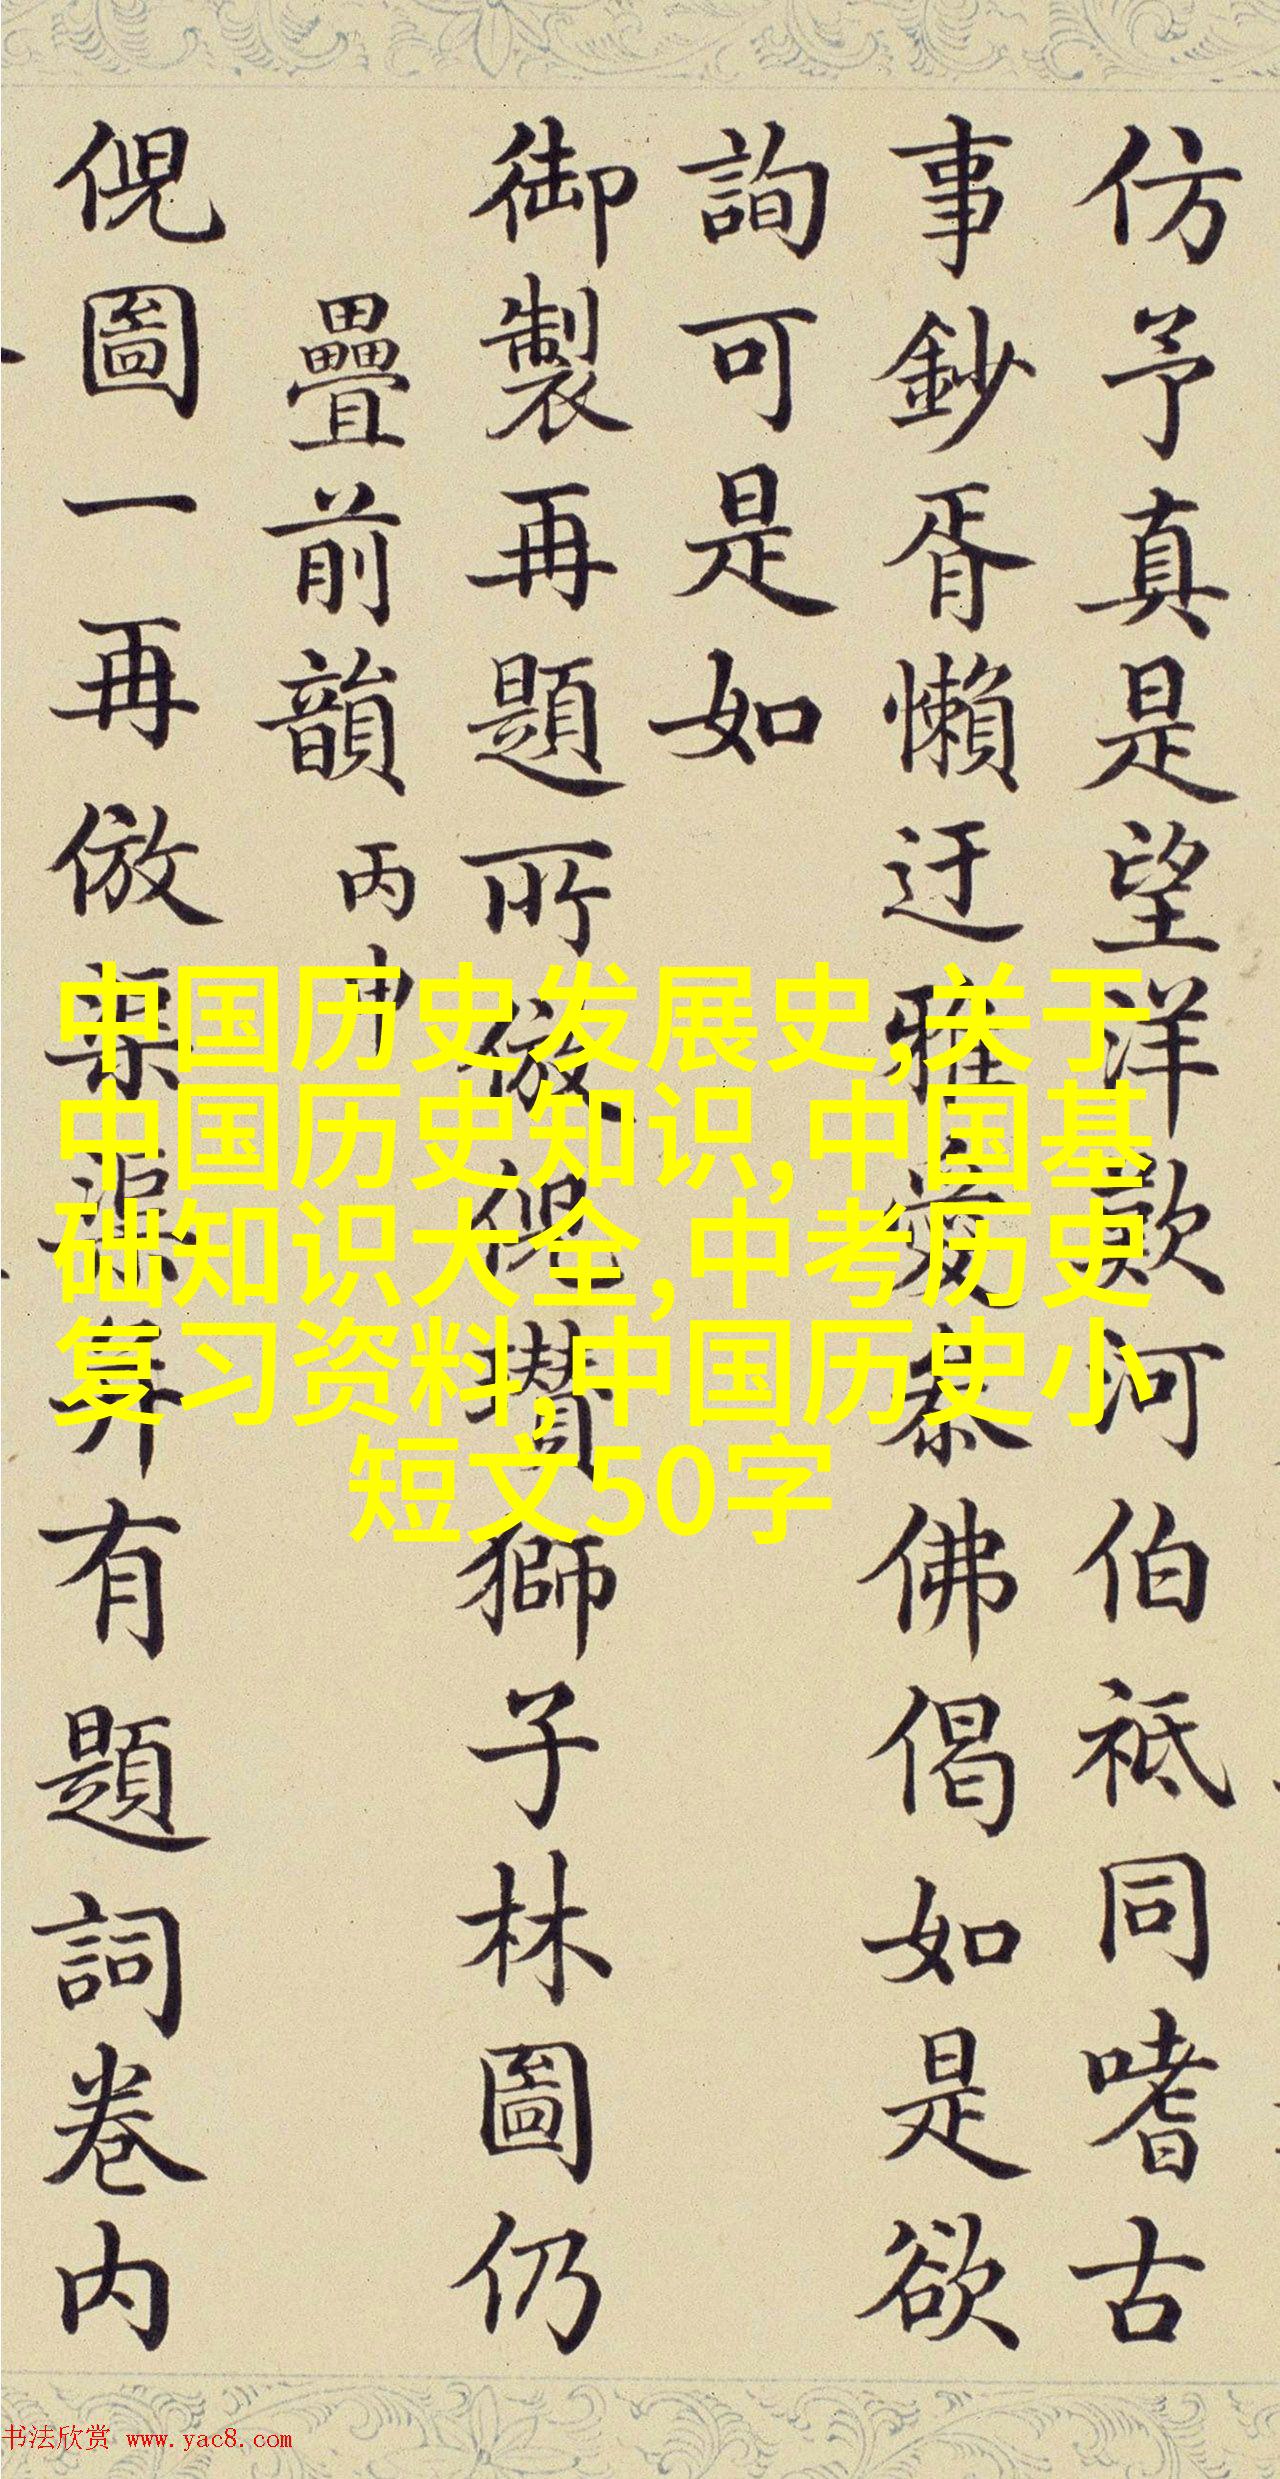 仿予真是望洋歎河伯祗同嗜古
事鈔胥懶迂雅愛佛偈如是欲
詢可是如
御製再題所倣倪瓚獅子林圖仍
疊前韻 丙申
倪圖一再倣弆有題詞卷内
中国历史发展史,关于
中国历史知识,中国基
础知识大全,中考历史
复习资料,中国历史小
短文50字
书法欣赏 www.yac8.com